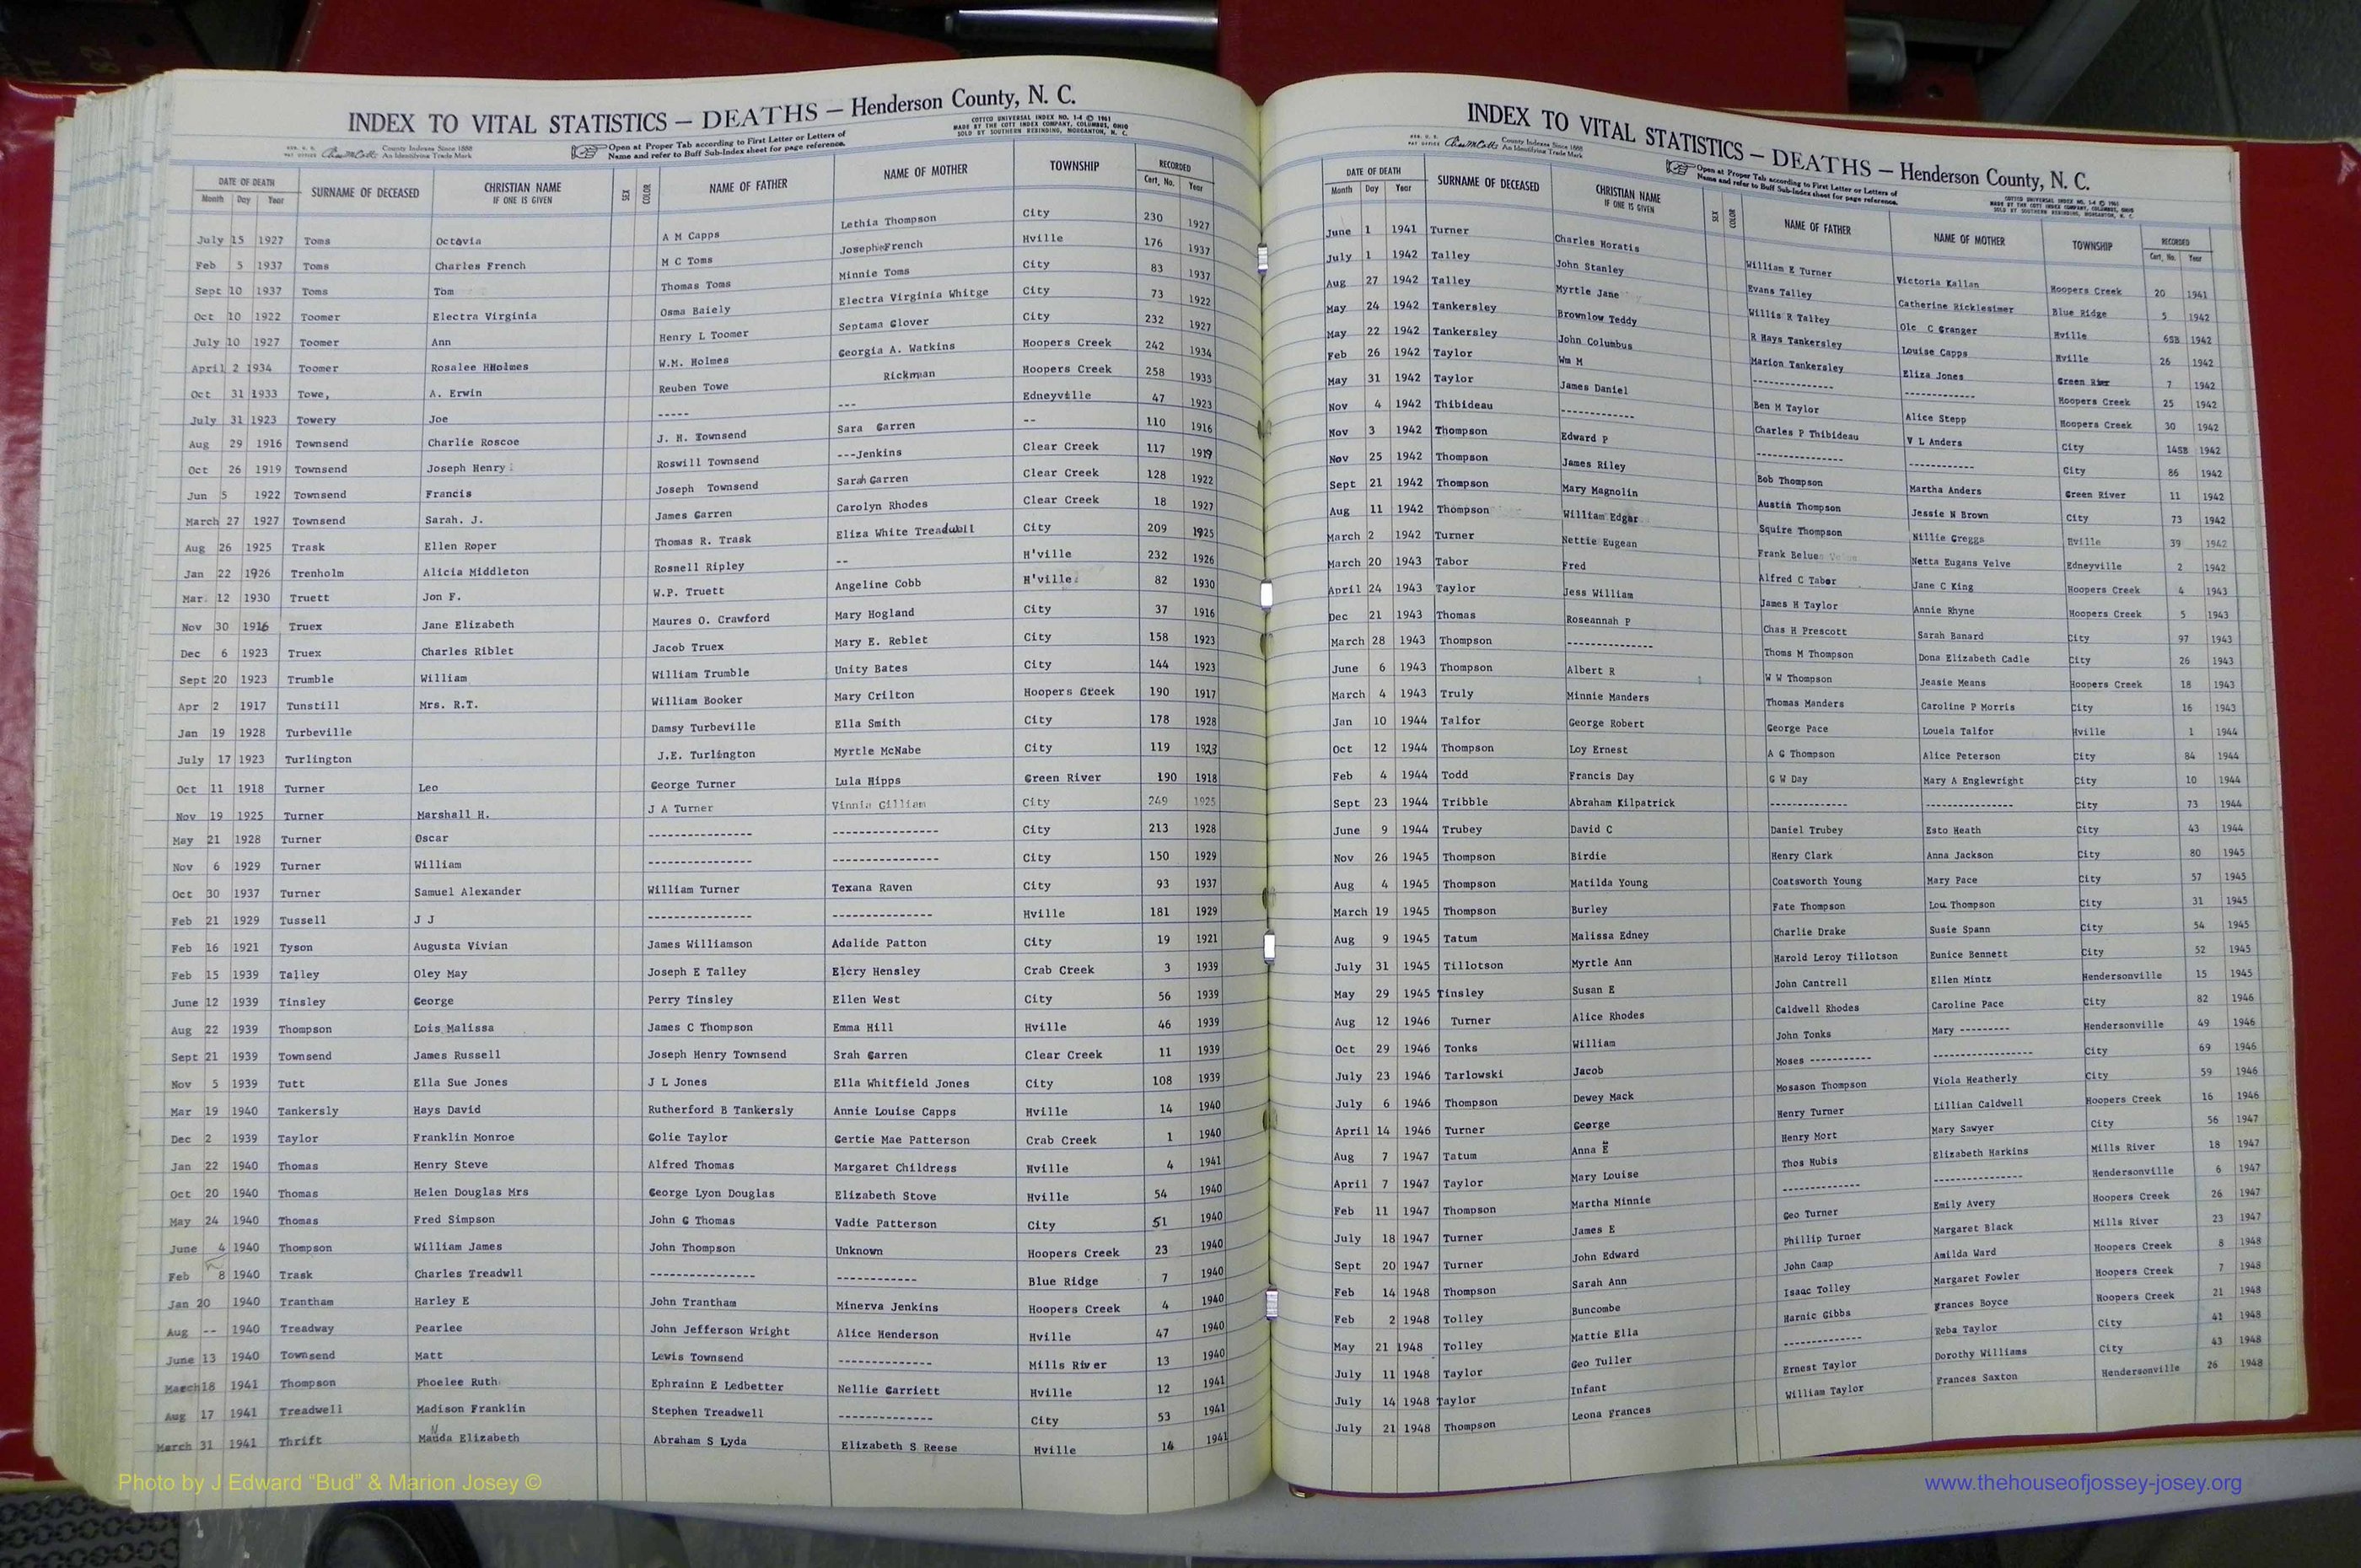 INDEX TO VITAL STATISTICS — DEATHS — Henderson County, N. C.
COTTCO UNIVERSAL INDEX NO. 1-4 © 1961
MADE BY THE COTT INDEX COMPANY, COLUMBUS, OHIO
SOLD BY SOUTHERN REBINDING, MORGANTON, N. C.
County Indexes Since 1888
An Identifying Trade Mark
Open at Proper Tab according to First Letter or Letters of
Name and refer to Buff Sub-Index sheet for page reference.
DATE OF DEATH SURNAME OF DECEASED CHRISTIAN NAME IF ONE IS GIVEN SEX COLOR NAME OF FATHER NAME OF MOTHER TOWNSHIP RECORDED
Month Day Year Cert. No. Year
July 15 1927 Toms Octavia A M Capps Lethia Thompson City 230 1927
Feb 5 1937 Toms Charles French M C Toms Joseph French Hville 176 1937
Sept 10 1937 Toms Tom Thomas Toms Minnie Toms City 83 1937
Oct 10 1922 Toomer Electra Virginia Osma Baiely Electra Virginia Whitge City 73 1922
July 10 1927 Toomer Ann Henry L Toomer Septama Glover City 232 1927
April 2 1934 Toomer Rosalee HHolmes W.M. Holmes Georgia A. Watkins Hoopers Creek 242 1934
Oct 31 1933 Towe, A. Erwin Reuben Towe Rickman Hoopers Creek 258 1933
July 31 1923 Towery Joe ----- --- Edneyville 47 1923
Aug 29 1916 Townsend Charlie Roscoe J. H. Townsend Sara Garren -- 110 1916
Oct 26 1919 Townsend Joseph Henry Roswill Townsend ---Jenkins Clear Creek 117 1919
Jun 5 1922 Townsend Francis Joseph Townsend Sarah Garren Clear Creek 128 1922
March 27 1927 Townsend Sarah. J. James Garren Carolyn Rhodes Clear Creek 18 1927
Aug 26 1925 Trask Ellen Roper Thomas R. Trask Eliza White Treadwell City 209 1925
Jan 22 1926 Trenholm Alicia Middleton Rosnell Ripley -- H'ville 232 1926
Mar. 12 1930 Truett Jon F. W.P. Truett Angeline Cobb H'ville 82 1930
Nov 30 1916 Truex Jane Elizabeth Maures O. Crawford Mary Hogland City 37 1916
Dec 6 1923 Truex Charles Riblet Jacob Truex Mary E. Reblet City 158 1923
Sept 20 1923 Trumble William William Trumble Unity Bates City 144 1923
Apr 2 1917 Tunstill Mrs. R.T. William Booker Mary Crilton Hoopers Creek 190 1917
Jan 19 1928 Turbeville Damsy Turbeville Ella Smith City 178 1928
July 17 1923 Turlington J.E. Turlington Myrtle McNabe City 119 1923
Oct 11 1918 Turner Leo George Turner Lula Hipps Green River 190 1918
Nov 19 1925 Turner Marshall H. J A Turner Vinnia Gilliam City 249 1925
May 21 1928 Turner Oscar ---------------- ---------------- City 213 1928
Nov 6 1929 Turner William ---------------- ---------------- City 150 1929
Oct 30 1937 Turner Samuel Alexander William Turner Texana Raven City 93 1937
Feb 21 1929 Tussell J J ---------------- --------------- Hville 181 1929
Feb 16 1921 Tyson Augusta Vivian James Williamson Adalide Patton City 19 1921
Feb 15 1939 Talley Oley May Joseph E Talley Elcry Hensley Crab Creek 3 1939
June 12 1939 Tinsley George Perry Tinsley Ellen West City 56 1939
Aug 22 1939 Thompson Lois Malissa James C Thompson Emma Hill Hville 46 1939
Sept 21 1939 Townsend James Russell Joseph Henry Townsend Srah Garren Clear Creek 11 1939
Nov 5 1939 Tutt Ella Sue Jones J L Jones Ella Whitfield Jones City 108 1939
Mar 19 1940 Tankersly Hays David Rutherford B Tankersly Annie Louise Capps Hville 14 1940
Dec 2 1939 Taylor Franklin Monroe Golie Taylor Gertie Mae Patterson Crab Creek 1 1940
Jan 22 1940 Thomas Henry Steve Alfred Thomas Margaret Childress Hville 4 1941
Oct 20 1940 Thomas Helen Douglas Mrs George Lyon Douglas Elizabeth Stove Hville 54 1940
May 24 1940 Thomas Fred Simpson John G Thomas Vadie Patterson City 51 1940
June 4 1940 Thompson William James John Thompson Unknown Hoopers Creek 23 1940
Feb 8 1940 Trask Charles Treadwll ---------------- ------------ Blue Ridge 7 1940
Jan 20 1940 Trantham Harley E John Trantham Minerva Jenkins Hoopers Creek 4 1940
Aug -- 1940 Treadway Pearlee John Jefferson Wright Alice Henderson Hville 47 1940
June 13 1940 Townsend Matt Lewis Townsend -------------- Mills River 13 1940
March 18 1941 Thompson Phoelee Ruth Ephrainn E Ledbetter Nellie Garriett Hville 12 1941
Aug 17 1941 Treadwell Madison Franklin Stephen Treadwell -------------- City 53 1941
March 31 1941 Thrift Manda Elizabeth Abraham S Lyda Elizabeth S Reese Hville 14 1941
INDEX TO VITAL STATISTICS — DEATHS — Henderson County, N. C.
County Indexes Since 1888
An Identifying Trade Mark
Open at Proper Tab according to First Letter or Letters of
Name and refer to Buff Sub-Index sheet for page reference.
COTTCO UNIVERSAL INDEX NO. 1-4 © 1961
MADE BY THE COTT INDEX COMPANY, COLUMBUS, OHIO
SOLD BY SOUTHERN REBINDING, MORGANTON, N. C.
DATE OF DEATH SURNAME OF DECEASED CHRISTIAN NAME IF ONE IS GIVEN SEX COLOR NAME OF FATHER NAME OF MOTHER TOWNSHIP RECORDED
Month Day Year Cert. No. Year
June 1 1941 Turner Charles Horatis William E Turner Victoria Kallan Hoopers Creek 20 1941
July 1 1942 Talley John Stanley Evans Talley Catherine Ricklesimer Blue Ridge 5 1942
Aug 27 1942 Talley Myrtle Jane Willis R Talley Ole C Granger Hville 65B 1942
May 24 1942 Tankersley Brownlow Teddy R Hays Tankersley Louise Capps Hville 26 1942
May 22 1942 Tankersley John Columbus Marion Tankersley Eliza Jones Green River 7 1942
Feb 26 1942 Taylor Wm M -------------- ------------ Hoopers Creek 25 1942
May 31 1942 Taylor James Daniel Ben M Taylor Alice Stepp Hoopers Creek 30 1942
Nov 4 1942 Thibideau ------------- Charles P Thibideau V L Anders City 145B 1942
Nov 3 1942 Thompson Edward P --------------- ------------ City 86 1942
Nov 25 1942 Thompson James Riley Bob Thompson Martha Anders Green River 11 1942
Sept 21 1942 Thompson Mary Magnolin Austin Thompson Jessie N Brown City 73 1942
Aug 11 1942 Thompson William Edgar Squire Thompson Nillie Greggs Hville 39 1942
March 2 1942 Turner Nettie Eugean Frank Belue Netta Eugans Velve Edneyville 2 1942
March 20 1943 Tabor Fred Alfred C Tabor Jane C King Hoopers Creek 4 1943
April 24 1943 Taylor Jess William James H Taylor Annie Rhyne Hoopers Creek 5 1943
Dec 21 1943 Thomas Roseannah P Chas H Prescott Sarah Banard City 97 1943
March 28 1943 Thompson --------------- Thoms M Thompson Dona Elizabeth Cadle City 26 1943
June 6 1943 Thompson Albert R W W Thompson Jeasie Means Hoopers Creek 18 1943
March 4 1943 Truly Minnie Manders Thomas Manders Caroline P Morris City 16 1943
Jan 10 1944 Talfor George Robert George Pace Louela Talfor Hville 1 1944
Oct 12 1944 Thompson Loy Ernest A G Thompson Alice Peterson City 84 1944
Feb 4 1944 Todd Francis Day G W Day Mary A Englewright City 10 1944
Sept 23 1944 Tribble Abraham Kilpatrick ------------- --------------- City 73 1944
June 9 1944 Trubey David C Daniel Trubey Esto Heath City 43 1944
Nov 26 1945 Thompson Birdie Henry Clark Anna Jackson City 80 1945
Aug 4 1945 Thompson Matilda Young Coatsworth Young Mary Pace City 57 1945
March 19 1945 Thompson Burley Fate Thompson Lou Thompson City 31 1945
Aug 9 1945 Tatum Malissa Edney Charlie Drake Susie Spann City 54 1945
July 31 1945 Tillotson Myrtle Ann Harold Leroy Tillotson Eunice Bennett City 52 1945
May 29 1945 Tinsley Susan E John Cantrell Ellen Mintz Hendersonville 15 1945
Aug 12 1946 Turner Alice Rhodes Caldwell Rhodes Caroline Pace City 82 1946
Oct 29 1946 Tonks William John Tonks Mary --------- Hendersonville 49 1946
July 23 1946 Tarlowski Jacob Moses ----------- ------------------ City 69 1946
July 6 1946 Thompson Dewey Mack Mosason Thompson Viola Heatherly City 59 1946
April 14 1946 Turner George Henry Turner Lillian Caldwell Hoopers Creek 16 1946
Aug 7 1947 Tatum Anna E Henry Mort Mary Sawyer City 56 1947
April 7 1947 Taylor Mary Louise Thos Hubis Elizabeth Harkins Mills River 18 1947
Feb 11 1947 Thompson Martha Minnie ------------- --------------- Hendersonville 6 1947
July 18 1947 Turner James E Geo Turner Emily Avery Hoopers Creek 26 1947
Sept 20 1947 Turner John Edward Phillip Turner Margaret Black Mills River 23 1947
Feb 14 1948 Thompson Sarah Ann John Camp Amilda Ward Hoopers Creek 8 1948
Feb 2 1948 Tolley Buncombe Isaac Tolley Margaret Fowler Hoopers Creek 7 1948
May 21 1948 Tolley Mattie Ella Harnic Gibbs Frances Boyce Hoopers Creek 21 1948
July 11 1948 Taylor Geo Tuller ------------- Reba Taylor City 41 1948
July 14 1948 Taylor Infant Ernest Taylor Dorothy Williams City 43 1948
July 21 1948 Thompson Leona Frances William Taylor Frances Saxton Hendersonville 26 1948
Photo by J Edward “Bud” & Marion Josey ©
www.thehouseofjossey-josey.org